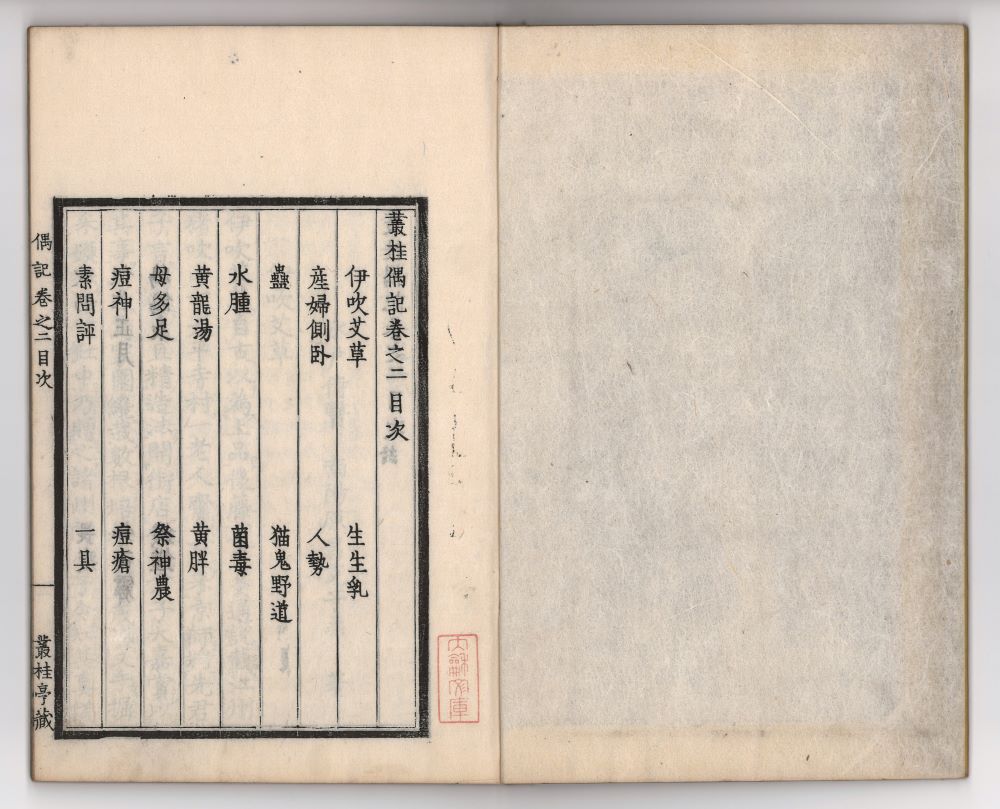 叢桂偶記卷之二目次
伊吹艾草　生生乳
産婦側臥　人勢
蠱　猫鬼野道
水腫　菌毒
黄龍湯　黄胖
母多足　祭神農
痘神　痘瘡
素問評　一具
偶記卷之二目次
叢桂亭藏